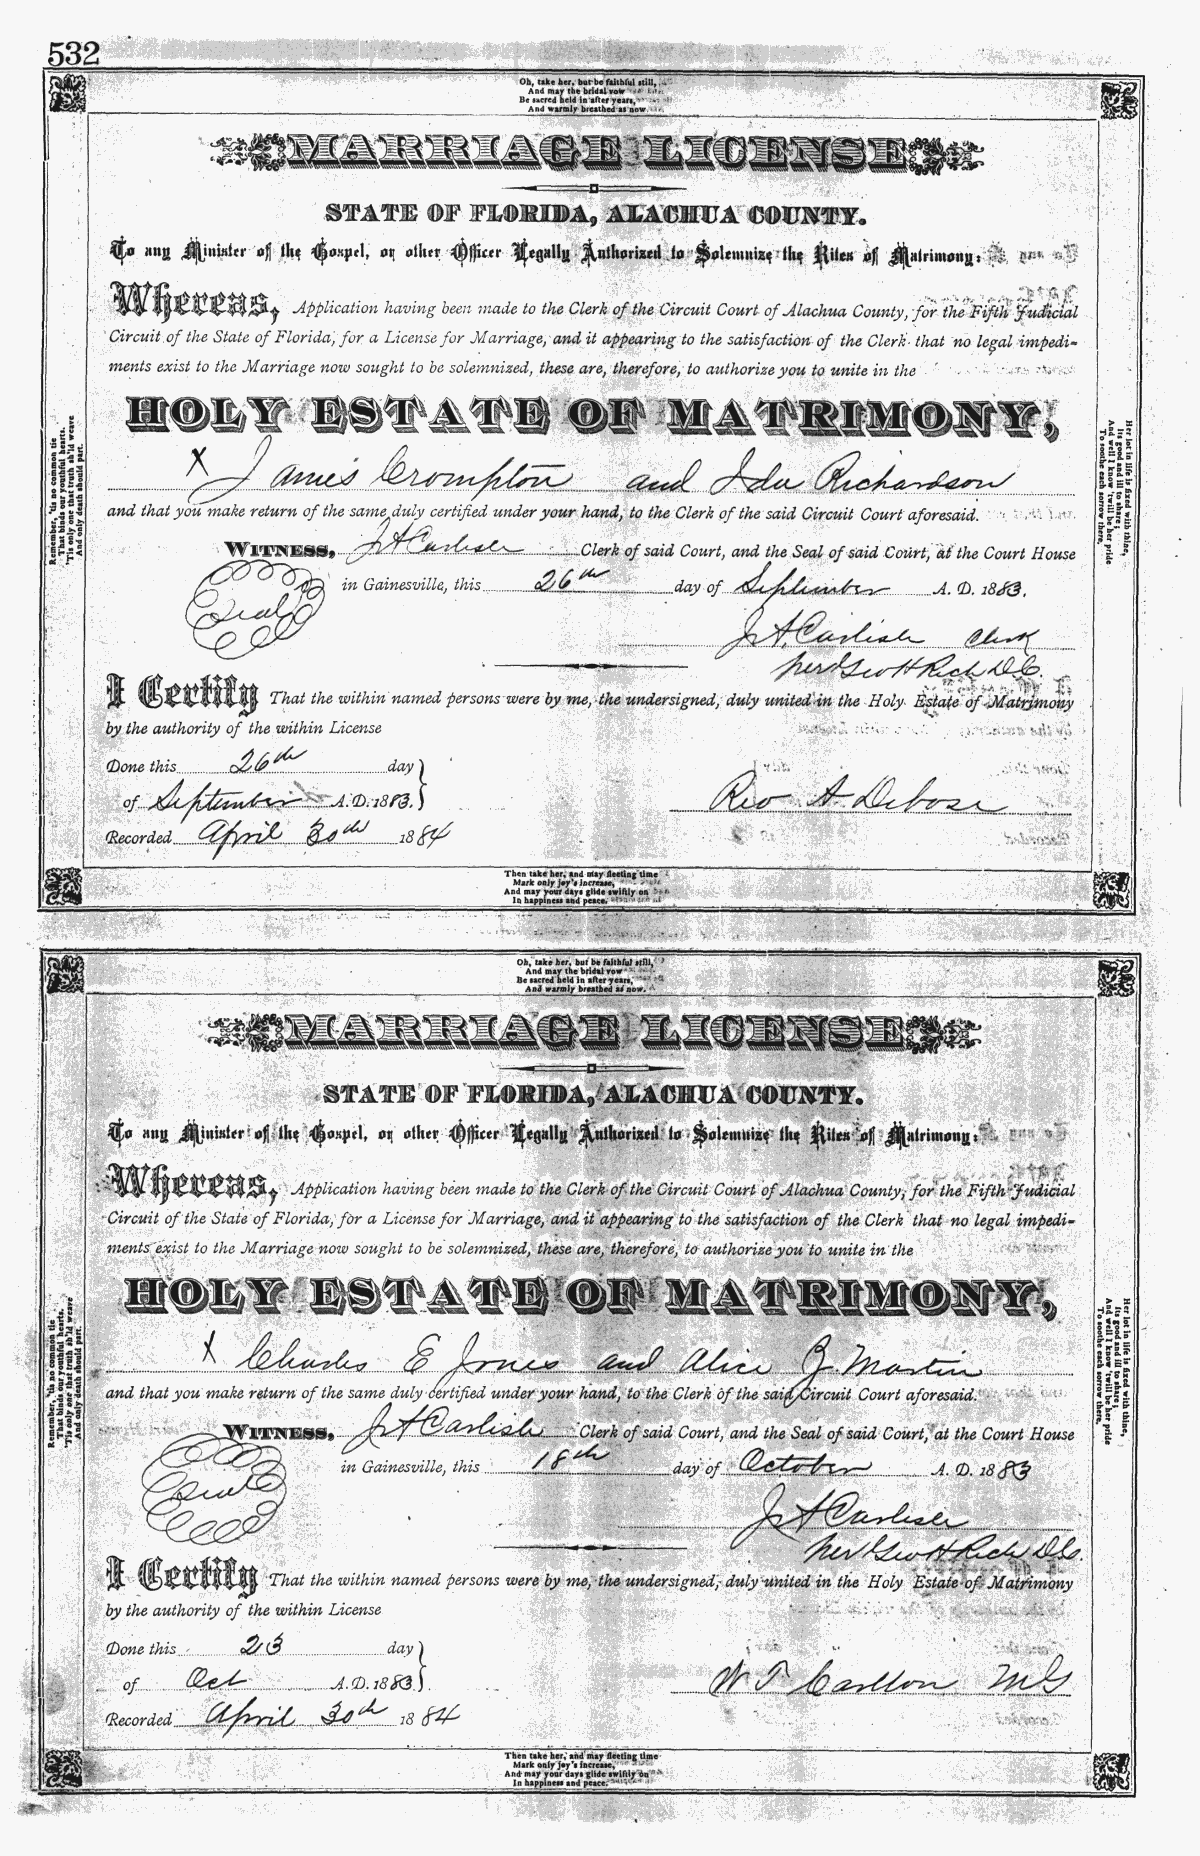 532
Oh, take her, but be faithful still,
And may the bridal vow
Be sacred held in after years,
And warmly breathed as now.
MARRIAGE LICENSE
STATE OF FLORIDA, ALACHUA COUNTY.
To any Minister of the Gospel, or other Officer Legally Authorized to Solemnize the Rites of Matrimony:
Whereas, Application having been made to the Clerk of the Circuit Court of Alachua County, for the Fifth Judicial
Circuit of the State of Florida, for a License for Marriage, and it appearing to the satisfaction of the Clerk that no legal impedi-
ments exist to the Marriage now sought to be solemnized, these are, therefore, to authorize you to unite in the
HOLY ESTATE OF MATRIMONY,
X James Crompton and Ida Richardson
and that you make return of the same duly certified under your hand, to the Clerk of the said Circuit Court aforesaid.
WITNESS, J A Carlisle Clerk of said Court, and the Seal of said Court, at the Court House
Seal in Gainesville, this 26th day of September A. D. 1883.
J. A. Carlisle Clerk
per Geo H Rich D.C.
I Certify That the within named persons were by me, the undersigned, duly united in the Holy Estate of Matrimony
by the authority of the within License
Done this 26th day
of September A.D. 1883.
Rev A. Debose
Recorded April 30th 1884
Remember, 'tis no common tie
That binds our youthful hearts.
'Tis only one that truth sh'ld weave
And only death should part.
Her lot in life is fixed with thine,
Its good and ill to share;
And well I know 'twill be her pride
To soothe each sorrow there,
Then take her, and may fleeting time
Mark only joy's increase,
And may your days glide swiftly on
In happiness and peace.
Oh, take her, but be faithful still,
And may the bridal vow
Be sacred held in after years,
And warmly breathed as now.
MARRIAGE LICENSE
STATE OF FLORIDA, ALACHUA COUNTY.
To any Minister of the Gospel, or other Officer Legally Authorized to Solemnize the Rites of Matrimony:
Whereas, Application having been made to the Clerk of the Circuit Court of Alachua County, for the Fifth Judicial
Circuit of the State of Florida, for a License for Marriage, and it appearing to the satisfaction of the Clerk that no legal impedi-
ments exist to the Marriage now sought to be solemnized, these are, therefore, to authorize you to unite in the
HOLY ESTATE OF MATRIMONY,
X Charles E Jones and Alice Z. Martin
and that you make return of the same duly certified under your hand, to the Clerk of the said Circuit Court aforesaid.
WITNESS, J A Carlisle Clerk of said Court, and the Seal of said Court, at the Court House
Seal in Gainesville, this 18th day of October A. D. 1883
J A Carlisle
per Geo H Rich D.C.
I Certify That the within named persons were by me, the undersigned, duly united in the Holy Estate of Matrimony
by the authority of the within License
Done this 23 day
of Oct A.D. 1883.
W T Carlton MG
Recorded April 30th 1884
Remember, 'tis no common tie
That binds our youthful hearts.
'Tis only one that truth sh'ld weave
And only death should part.
Her lot in life is fixed with thine,
Its good and ill to share;
And well I know 'twill be her pride
To soothe each sorrow there,
Then take her, and may fleeting time
Mark only joy's increase,
And may your days glide swiftly on
In happiness and peace.